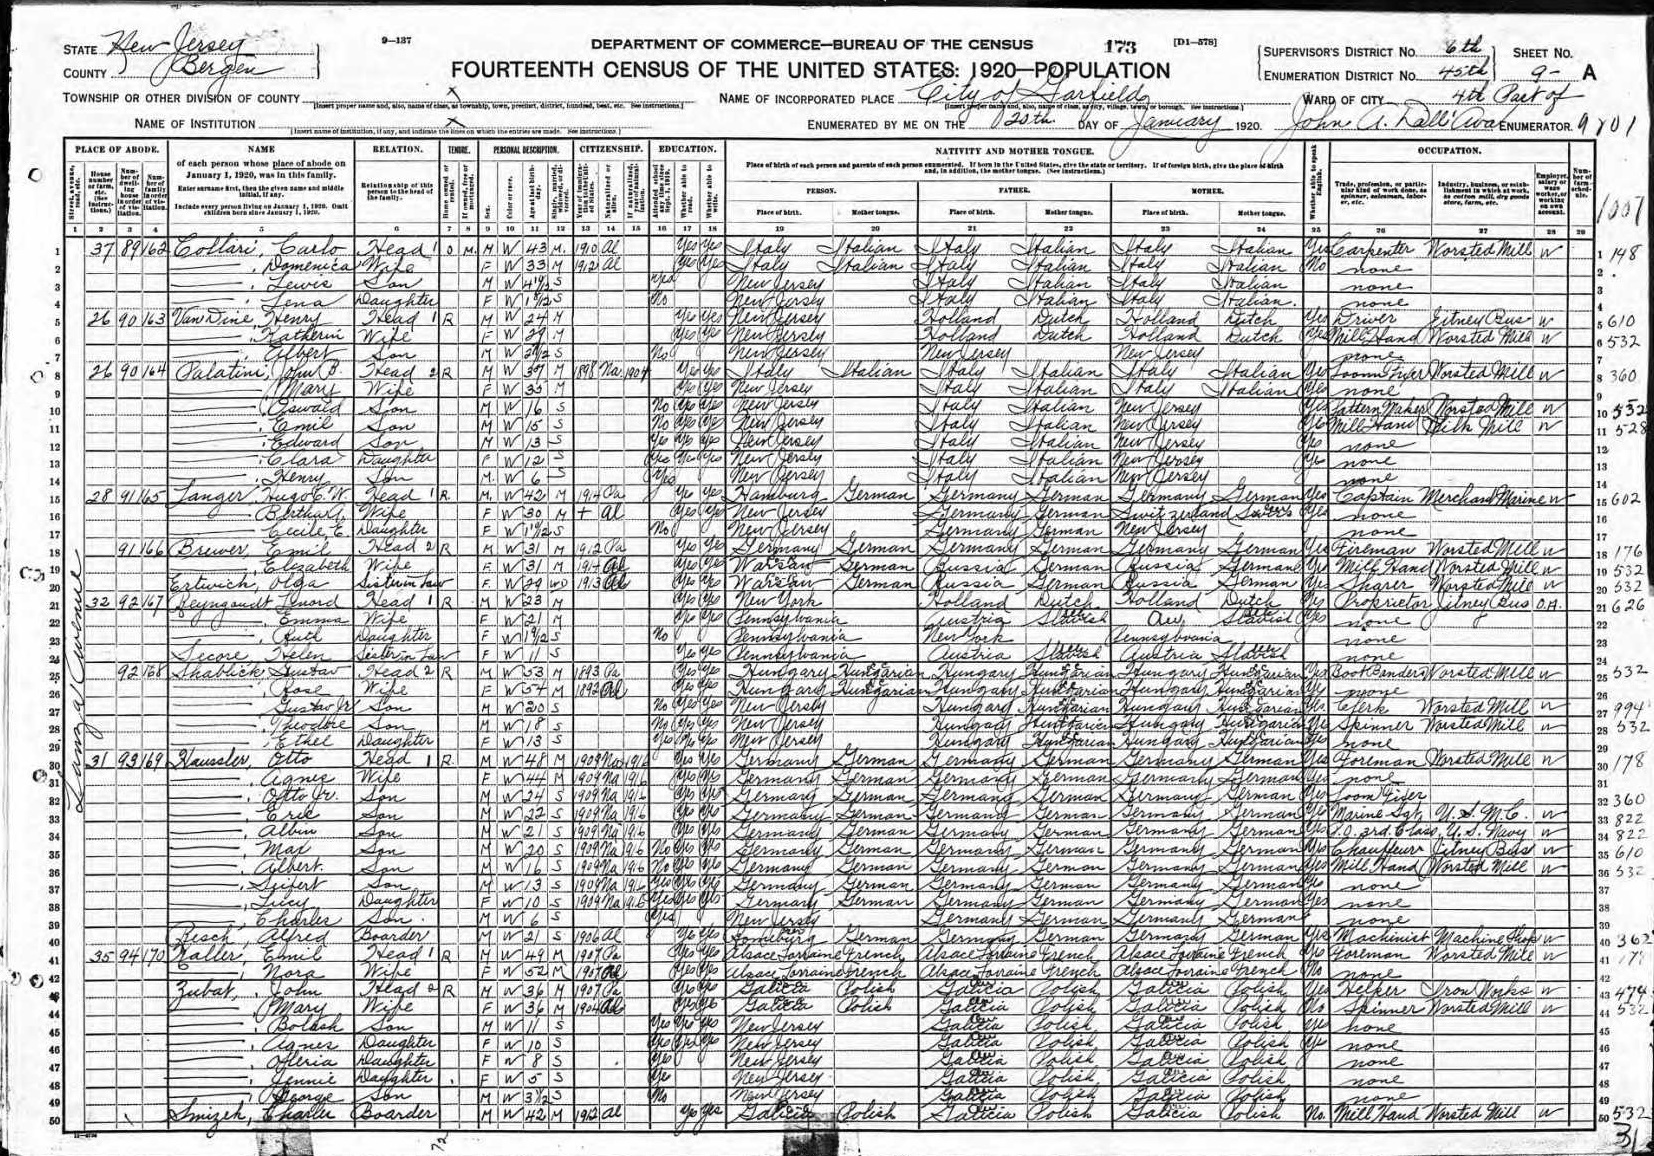 STATE New Jersey
COUNTY Bergen
9-137
DEPARTMENT OF COMMERCE—BUREAU OF THE CENSUS
173 [D1-578]
FOURTEENTH CENSUS OF THE UNITED STATES: 1920—POPULATION
SUPERVISOR'S DISTRICT No. 6th
ENUMERATION DISTRICT No. 45th
SHEET No. 9- A
TOWNSHIP OR OTHER DIVISION OF COUNTY x
NAME OF INCORPORATED PLACE City of Garfield
WARD OF CITY 4th Part of
NAME OF INSTITUTION x
ENUMERATED BY ME ON THE 20th DAY OF January 1920. ENUMERATOR.
PLACE OF ABODE. NAME RELATION. TENURE. PERSONAL DESCRIPTION. CITIZENSHIP. EDUCATION. NATIVITY AND MOTHER TONGUE. OCCUPATION.
of each person whose place of abode on January 1, 1920, was in this family.
Enter surname first, then the given name and middle initial, if any.
Include every person living on January 1, 1920. Omit children born since January 1, 1920.
Relationship of this person to the head of the family.
Place of birth of each person and parents of each person enumerated. If born in the United States, give the state or territory. If of foreign birth, give the place of birth and, in addition, the mother tongue. (See instructions.)
PERSON. FATHER. MOTHER.
Place of birth. Mother tongue. Place of birth. Mother tongue. Place of birth. Mother tongue.
1 2 3 4 5 6 7 8 9 10 11 12 13 14 15 16 17 18 19 20 21 22 23 24 25 26 27 28 29
1 37 89 162 Collari, Carlo Head 1 O M. M W 43 M. 1910 Al Yes Yes Italy Italian Italy Italian Italy Italian Yes Carpenter Worsted Mill W 1 148
2 Domenica Wife F W 33 M 1912 Al Yes Yes Italy Italian Italy Italian Italy Italian No none 2
3 Lewis Son M W S Yes New Jersey Italy Italian Italy Italian none 3
4 Lena Daughter F W S No New Jersey Italy Italian Italy Italian. none 4
5 26 90 163 Van Dine, Henry Head 1 R M W 24 M Yes Yes New Jersey Holland Dutch Holland Dutch Yes Driver Jitney Bus W 5 610
6 Katherin Wife F W M Yes Yes New Jersey Holland Dutch Holland Dutch Yes Mill Hand Worsted Mill W 6 532
7 Albert Son M W S No New Jersey New Jersey New Jersey none 7
8 26 90 164 Palatini, John B. Head 2 R M W M 1898 Na 1904 Yes Yes Italy Italian Italy Italian Italy Italian Yes Loom Fixer Worsted Mill W 8 360
9 Mary Wife F W 35 M Yes Yes New Jersey Italy Italian Italy Italian Yes none 9
10 Oswald Son M W 16 S No Yes Yes New Jersey Italy Italian New Jersey Yes Pattern Maker Worsted Mill W 10 532
11 Emil Son M W 15 S No Yes Yes New Jersey Italy Italian New Jersey Yes Mill Hand Silk Mill W 11 528
12 Edward Son M W 13 S Yes Yes Yes New Jersey Italy Italian New Jersey Yes none 12
13 Clara Daughter F W 12 S Yes Yes Yes New Jersey Italy Italian New Jersey Yes none 13
14 Henry Son M. W 6 S Yes New Jersey Italy Italian New Jersey none 14
15 28 91 165 Langer, Hugo C. W. Head 1 R M. W 42 M 1914 Pa Yes Yes Hamburg German Germany German Germany German Yes Captain Merchant Marine W 15 602
16 Bertha A. Wife F W 30 M + Al Yes Yes New Jersey Germany German Switzerland Yes none 16
17 Cecile E. Daughter F W S No New Jersey Germany German New Jersey none 17
18 91 166 Brewer, Emil Head 2 R M W 31 M 1912 Pa Yes Yes Germany German Germany German Germany German Yes Fireman Worsted Mill W 18 176
19 Elizabeth Wife F W 31 M 1914 Al Yes Yes Warsaw German Russia German Russia German Yes Mill Hand Worsted Mill W 19 532
20 Ertwich, Olga Sister in Law F. W 29 WD 1913 Al Yes Yes Warsaw German Russia German Russia German Yes Worsted Mill W 20 532
21 32 92 167 Lenord Head 1 R M W 23 M Yes Yes New York Holland Dutch Holland Dutch Yes Proprietor Jitney Bus O.A. 21 626
22 Emma Wife F W 21 M Yes Yes Pennsylvania Austria Slavish Aus Slavish Yes none 22
23 Ruth Daughter F W S No Pennsylvania New York Pennsylvania none 23
24 Secore, Helen Sister in Law F W 11 S Yes Yes Pennsylvania Austria Slavish Austria Slavish none 24
25 92 168 Shablick, Gustav Head 2 R M W 53 M 1893 Pa Yes Yes Hungary Hungarian Hungary Hungarian Hungary Hungarian Yes Worsted Mill W 25 532
26 Rose Wife F W 54 M 1892 Al Yes Yes Hungary Hungarian Hungary Hungarian Hungary Hungarian Yes none 26
27 Gustav Jr Son M W 20 S No Yes Yes New Jersey Hungary Hungarian Hungary Hungarian Yes Clerk Worsted Mill W 27 994
28 Theodore Son M W 18 S No Yes Yes New Jersey Hungary Hungarian Hungary Hungarian Yes Spinner Worsted Mill W 28 532
29 Ethel Daughter F W 13 S Yes Yes Yes New Jersey Hungary Hungarian Hungary Hungarian Yes none 29
30 31 93 169 Haussler, Otto Head 1 R M W 48 M 1909 Na 1916 Yes Yes Germany German Germany German Germany German Yes Foreman Worsted Mill W 30 178
31 Agnes Wife F W 44 M 1909 Na 1916 Yes Yes Germany German Germany German Germany German Yes none 31
32 Otto Jr. Son M W 24 S 1909 Na 1916 Yes Yes Germany German Germany German Germany German Yes Loom Fixer 32 360
33 Eric Son M W 22 S 1909 Na 1916 Yes Yes Germany German Germany German Germany German Yes Marine Sgt U.S.M.C. W 33 822
34 Albin Son M W 21 S 1909 Na 1916 Yes Yes Germany German Germany German Germany German Yes P.O. 3rd Class, U.S. Navy W 34 822
35 Max Son M W 20 S 1909 Na 1916 No Yes Yes Germany German Germany German Germany German Yes Chauffeur Jitney Bus W 35 610
36 Albert Son M W 16 S 1909 Na 1916 No Yes Yes Germany German Germany German Germany German Yes Mill Hand Worsted Mill W 36 532
37 Seifert Son M W 13 S 1909 Na 1916 Yes Yes Yes Germany German Germany German Germany German Yes none 37
38 Lucy Daughter F W 10 S 1909 Na 1916 Yes Yes Yes Germany German Germany German Germany German Yes none 38
39 Charles Son. M W 6 S Yes New Jersey Germany German Germany German none 39
40 Resch, Alfred Boarder M W 21 S 1906 Al Yes Yes German Germany German Germany German Yes Machinist Machine Shop W 40 362
41 35 94 170 Kaller, Emil Head 1 R M W 49 M 1907 Pa Yes Yes Alsace Lorraine French Alsace Lorraine French Alsace Lorraine French Yes Foreman Worsted Mill W 41 178
42 Nora Wife F W 52 M 1907 Al Yes Yes Alsace Lorraine French Alsace Lorraine French Alsace Lorraine French No none 42
43 Zubat, John Head 2 R M W 36 M 1907 Pa Yes Yes Galicia Polish Galicia Polish Galicia Polish Yes Helper Iron Works W 43 474
44 Mary Wife F W 36 M 1904 Al Yes Yes Galicia Polish Galicia Polish Galicia Polish No Spinner Worsted Mill W 44 532
45 Bolash Son M W 11 S Yes Yes Yes New Jersey Galicia Polish Galicia Polish Yes none 45
46 Agnes Daughter F W 10 S Yes Yes Yes New Jersey Galicia Polish Galicia Polish Yes none 46
47 Daughter F W 8 S Yes New Jersey Galicia Polish Galicia Polish none 47
48 Jennie Daughter F W 5 S Yes New Jersey Galicia Polish Galicia Polish none 48
49 George Son M W S No New Jersey Galicia Polish Galicia Polish none 49
50 Smizek, Charlie Boarder M W 42 M 1912 Al Yes Yes Galicia Polish Galicia Polish Galicia Polish No. Mill Hand Worsted Mill W 50 532
Lanza Avenue